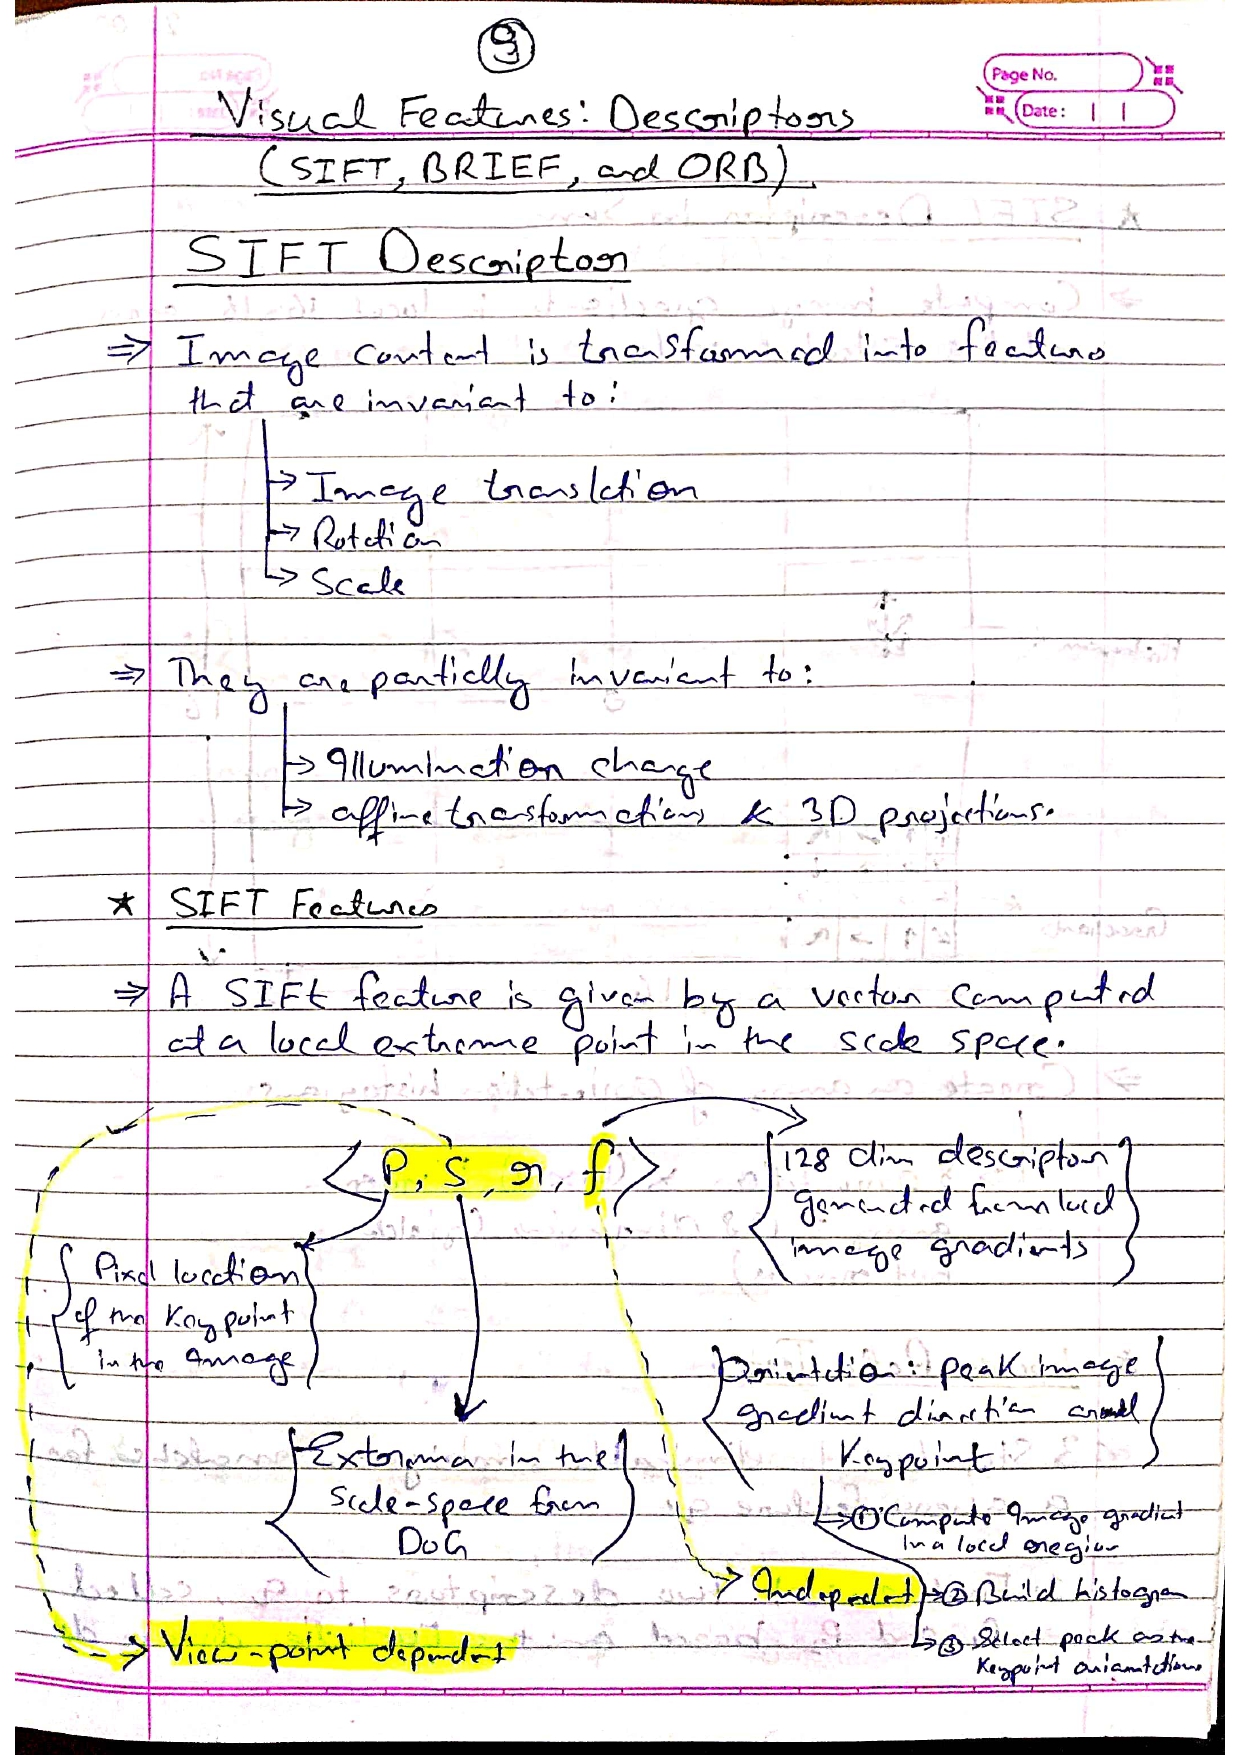 9
Page No.
Date:
Visual Features: Descriptors
(SIFT, BRIEF, and ORB)
SIFT Descriptor
⇒ Image content is transformed into features
that are invariant to:
→ Image translation
→ Rotation
→ Scale
⇒ They are partially invariant to:
→ Illumination change
→ affine transformations & 3D projections.
★ SIFT Features
⇒ A SIFt feature is given by a vector computed
at a local extreme point in the scale space.
<P, S, r, f>
128 dim descriptor
generated from local
image gradients
Pixel location
of the Keypoint
in the Image
Orientation: peak image
gradient direction around
Keypoint
Extrema in the
Scale-space from
DoG
① Compute Image gradient
in a local region
② Build histogram
③ Select peak as the
Keypoint orientations
Independent
View-point dependent